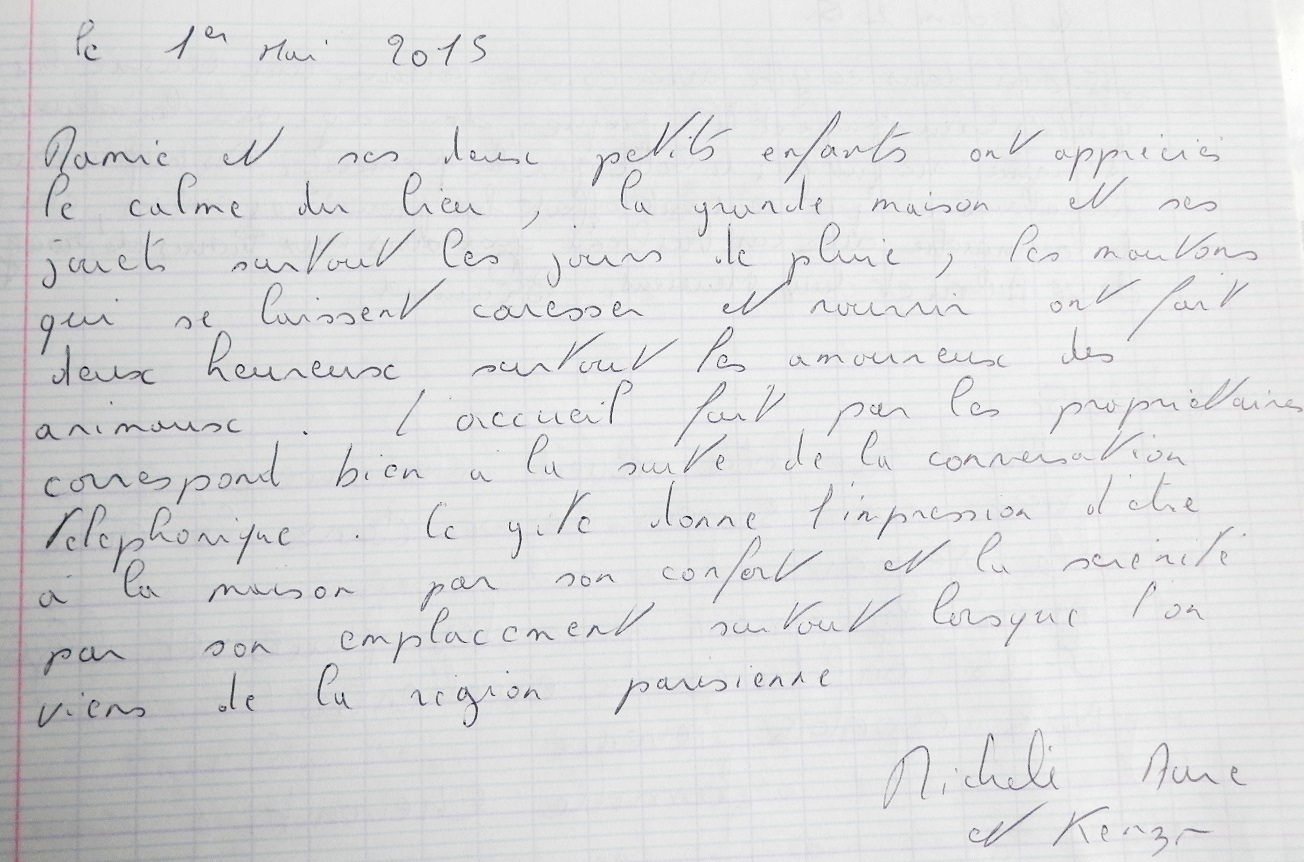 le 1er Mai 2015
Mamie et ses deux petits enfants ont appréciés
le calme du lieu, la grande maison et ses
jouets surtout les jours de pluie, les moutons
qui se laissent caresser et nourrir ont fait
deux heureux surtout les amoureux des
animaux. l'accueil fait par les propriétaires
correspond bien à la suite de la conversation
téléphonique. Ce gite donne l'impression d'être
à la maison par son confort et la sérénité
par son emplacement surtout lorsque l'on
viens de la région parisienne
Michele
et Kenza